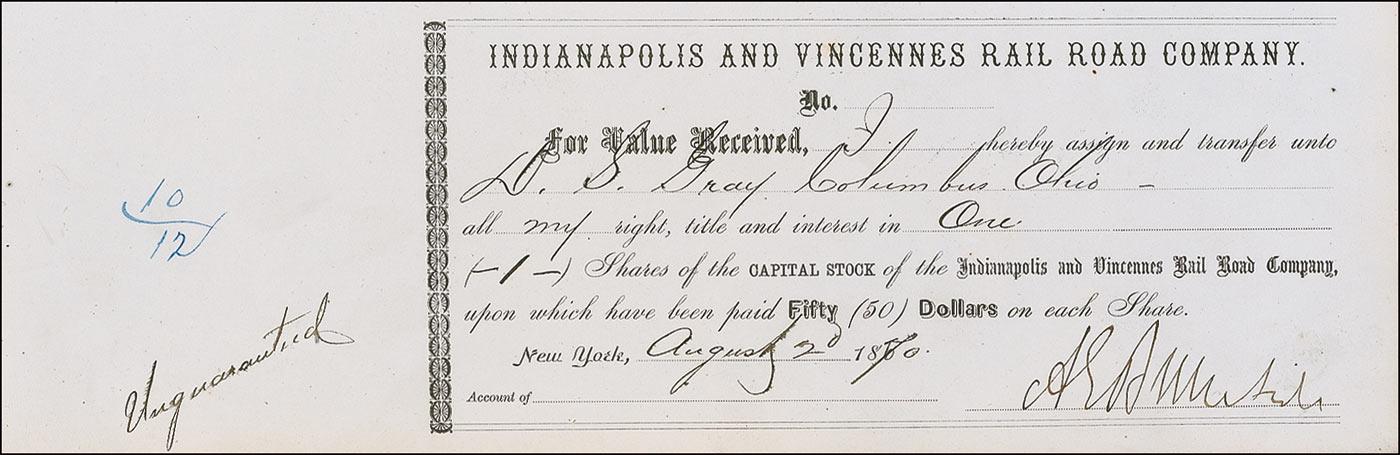 INDIANAPOLIS AND VINCENNES RAIL ROAD COMPANY.
No.
For Value Received, I hereby assign and transfer unto
D. S. Gray Columbus Ohio –
all my right, title and interest in One
(–1–) Shares of the CAPITAL STOCK of the Indianapolis and Vincennes Rail Road Company,
upon which have been paid Fifty (50) Dollars on each Share.
New York, August 2d 1870.
Account of
10
12
Unguaranteed